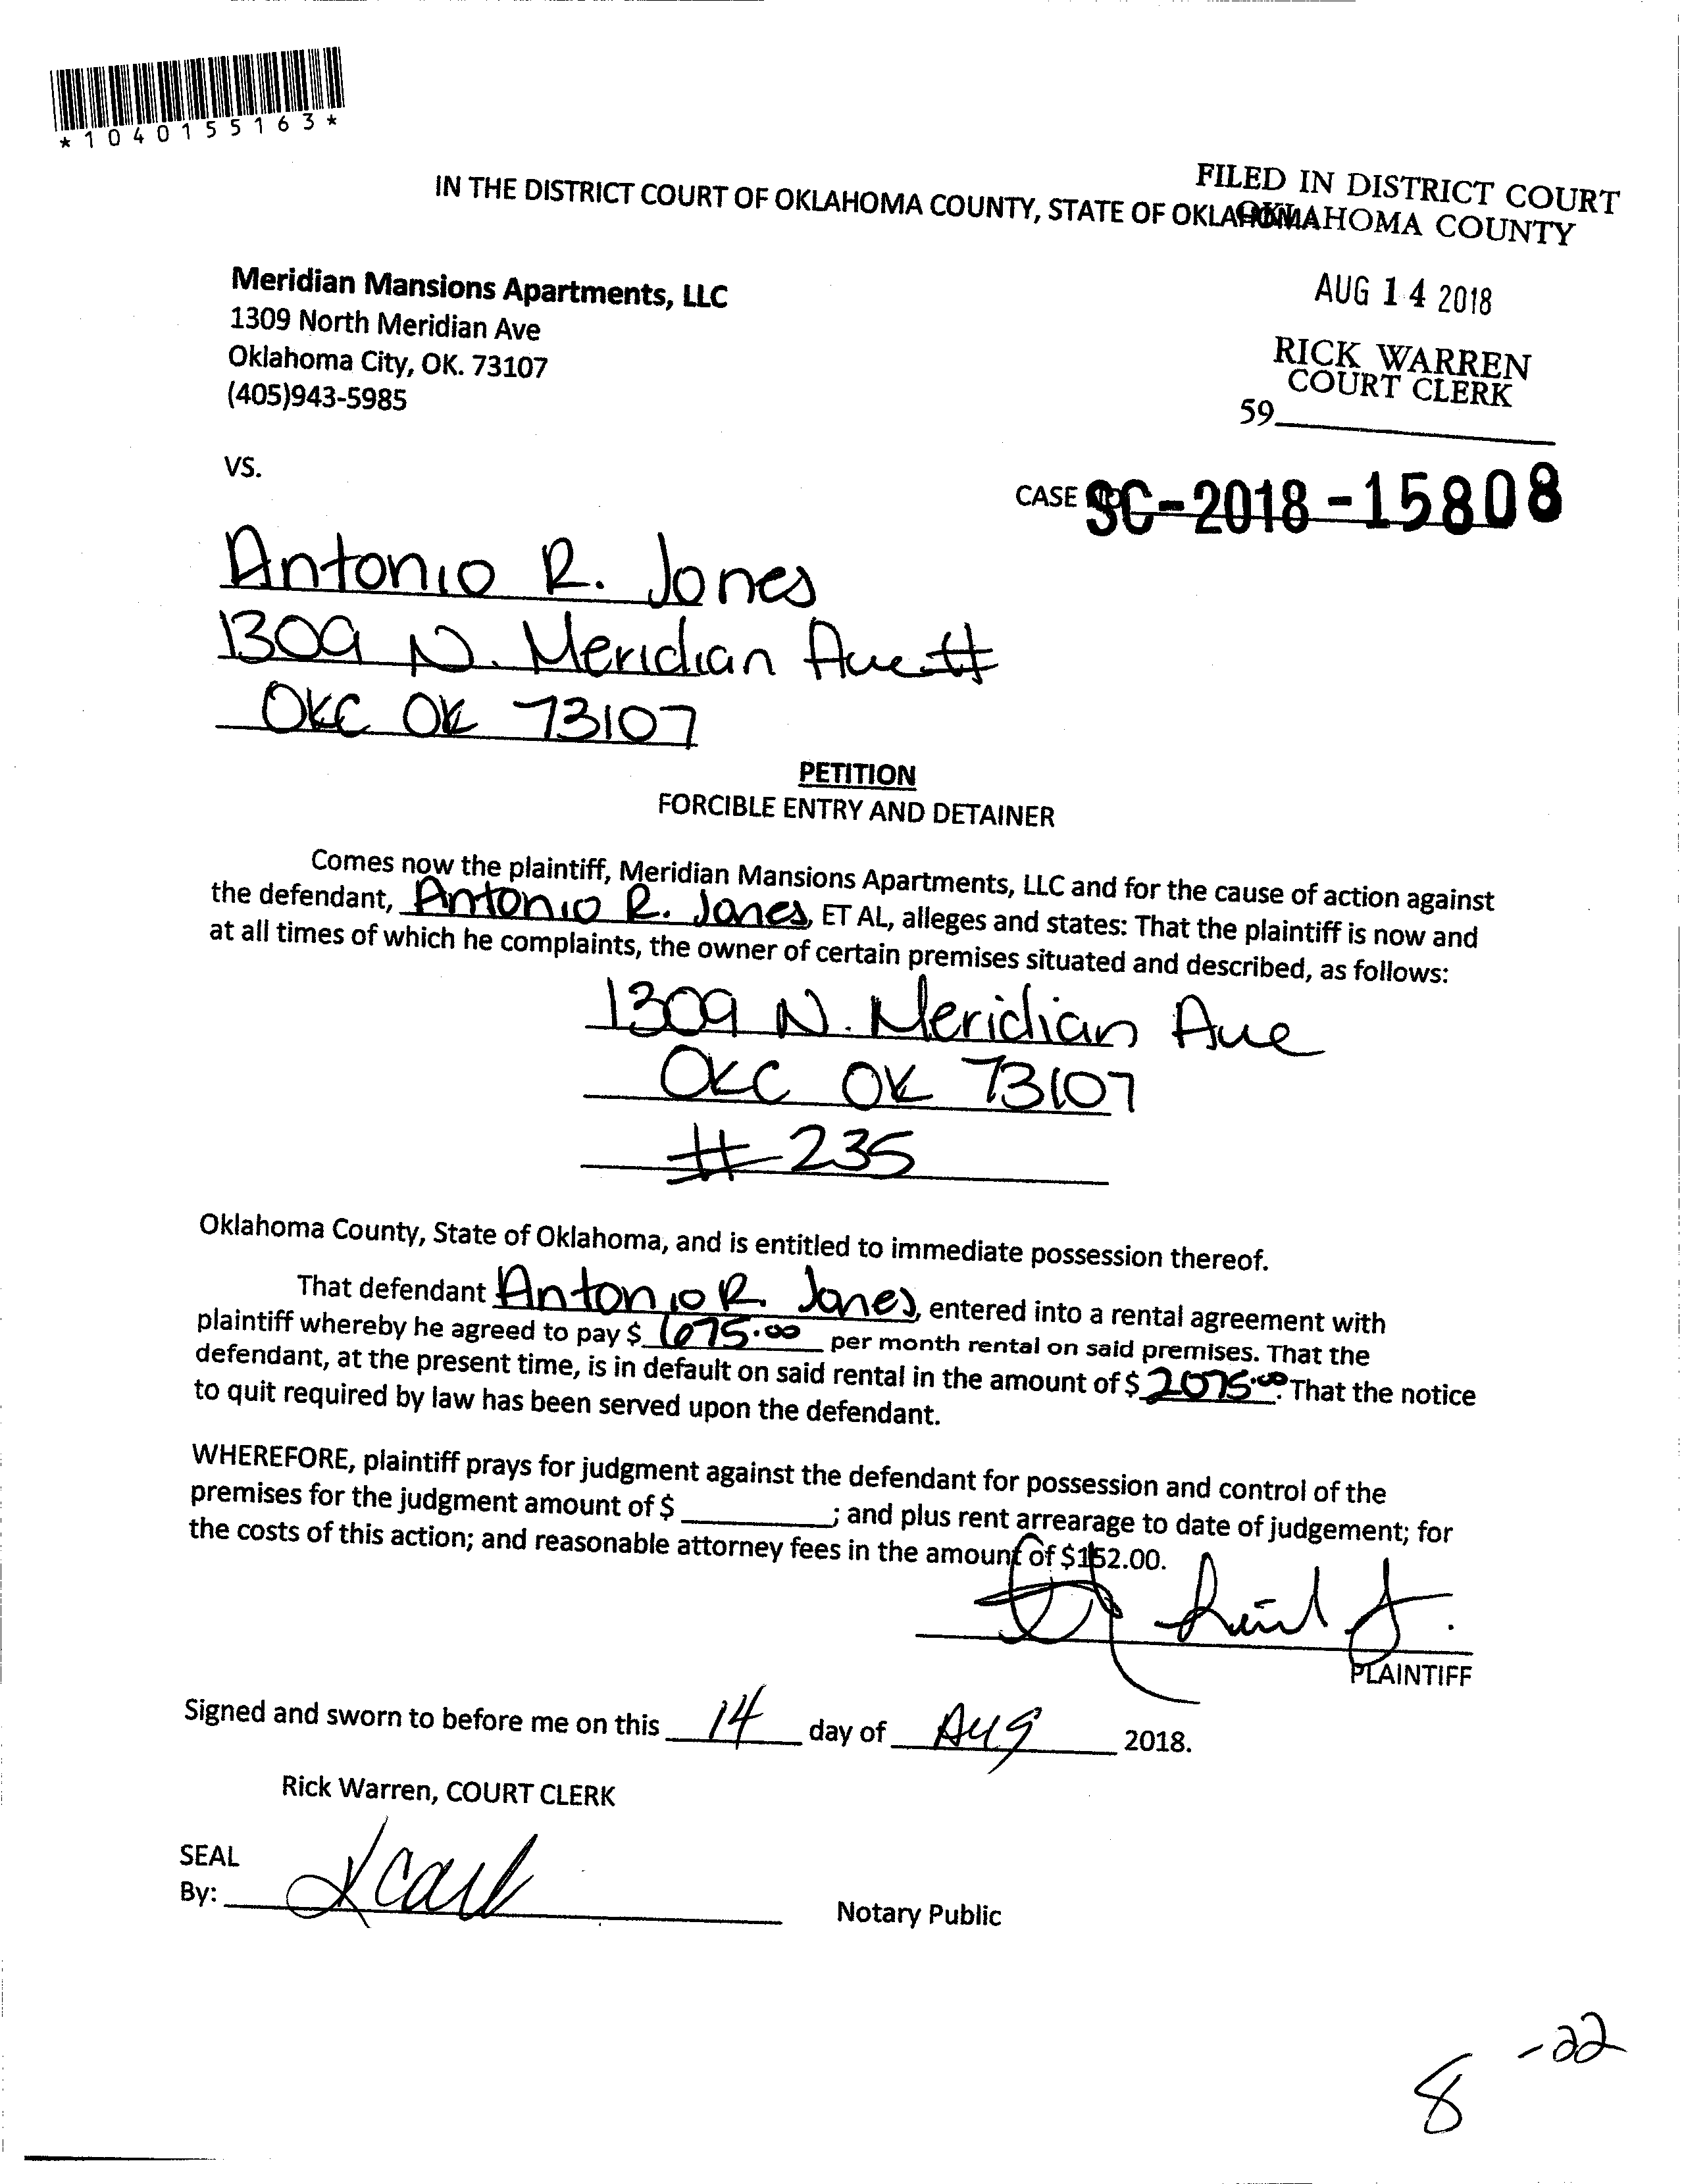 *1040155163*
FILED IN DISTRICT COURT
OKLAHOMA COUNTY
IN THE DISTRICT COURT OF OKLAHOMA COUNTY, STATE OF OKLAHOMA
AUG 14 2018
RICK WARREN
COURT CLERK
59
Meridian Mansions Apartments, LLC
1309 North Meridian Ave
Oklahoma City, OK. 73107
(405)943-5985
VS.
CASE NO SC-2018-15808
Antonio R. Jones
1309 N. Meridian Ave #
OKC OK 73107
PETITION
FORCIBLE ENTRY AND DETAINER
Comes now the plaintiff, Meridian Mansions Apartments, LLC and for the cause of action against
the defendant, Antonio R. Jones, ET AL, alleges and states: That the plaintiff is now and
at all times of which he complaints, the owner of certain premises situated and described, as follows:
1309 N. Meridian Ave
OKC OK 73107
# 235
Oklahoma County, State of Oklahoma, and is entitled to immediate possession thereof.
That defendant Antonio R. Jones, entered into a rental agreement with
plaintiff whereby he agreed to pay $ 675.00 per month rental on said premises. That the
defendant, at the present time, is in default on said rental in the amount of $ 2075.00. That the notice
to quit required by law has been served upon the defendant.
WHEREFORE, plaintiff prays for judgment against the defendant for possession and control of the
premises for the judgment amount of $ ; and plus rent arrearage to date of judgement; for
the costs of this action; and reasonable attorney fees in the amount of $152.00.
PLAINTIFF
Signed and sworn to before me on this 14 day of Aug 2018.
Rick Warren, COURT CLERK
SEAL
By: Notary Public
8-22